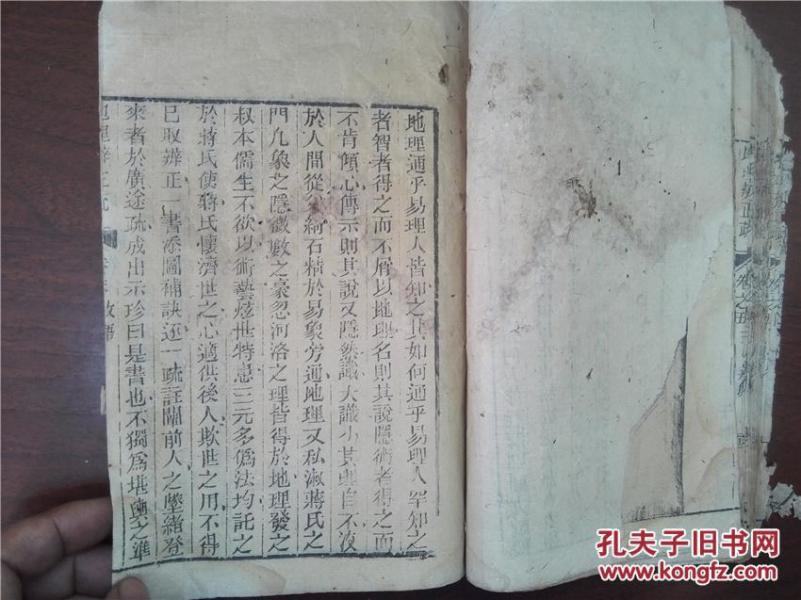 地理通乎易理人皆知之其如何通乎易理人罕知之
者智者得之而不屑以地理名則其說隱術者得之而
不肯傾心傳示則其說又隱然識大識小其理自不沒
於人間從父綺石精於易象旁通地理又私淑蔣氏之
門凡象之隱微數之豪忽河洛之理皆得於地理發之
叔本儒生不欲以術藝炫世特患三元多偽法均託之
於蔣氏使蔣氏懷濟世之心適供後人欺世之用不得
已取辨正一書添圖補訣逐一疏註闡前人之墜緒登
來者於廣途疏成出示珍曰是書也不獨為堪輿之準
地理辨正疏
卷之
孔夫子旧书网
www.kongfz.com